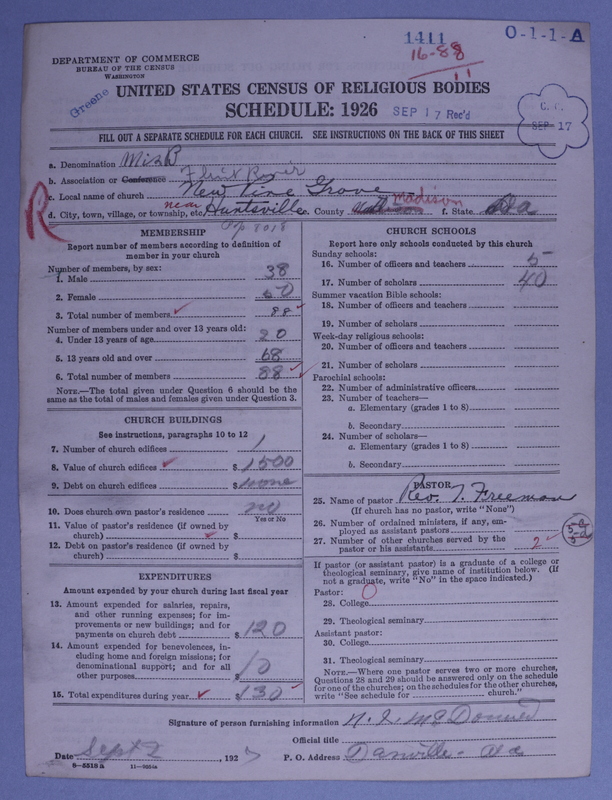 1411
O-1-1-A
16-88
11
DEPARTMENT OF COMMERCE
BUREAU OF THE CENSUS
WASHINGTON
Greene
UNITED STATES CENSUS OF RELIGIOUS BODIES
SCHEDULE: 1926
SEP 17 Rec'd
SEP 17
FILL OUT A SEPARATE SCHEDULE FOR EACH CHURCH. SEE INSTRUCTIONS ON THE BACK OF THIS SHEET
a. Denomination Mis B
b. Association or Conference Flint River
c. Local name of church New Pine Grove
d. City, town, village, or township, etc. near Huntsville e. County Madison f. State Ala
R
MEMBERSHIP
Report number of members according to definition of
member in your church
Number of members, by sex:
1. Male 38
2. Female 50
3. Total number of members 88
Number of members under and over 13 years old:
4. Under 13 years of age 20
5. 13 years old and over 68
6. Total number of members 88
NOTE.—The total given under Question 6 should be the
same as the total of males and females given under Question 3.
CHURCH BUILDINGS
See instructions, paragraphs 10 to 12
7. Number of church edifices 1
8. Value of church edifices $ 1500
9. Debt on church edifices $ none
10. Does church own pastor's residence no
Yes or No
11. Value of pastor's residence (if owned by
church) $
12. Debt on pastor's residence (if owned by
church) $
EXPENDITURES
Amount expended by your church during last fiscal year
13. Amount expended for salaries, repairs,
and other running expenses; for im-
provements or new buildings; and for
payments on church debt $ 120
14. Amount expended for benevolences, in-
cluding home and foreign missions; for
denominational support; and for all
other purposes $ 10
15. Total expenditures during year $ 130
CHURCH SCHOOLS
Report here only schools conducted by this church
Sunday schools:
16. Number of officers and teachers 5
17. Number of scholars 40
Summer vacation Bible schools:
18. Number of officers and teachers
19. Number of scholars
Week-day religious schools:
20. Number of officers and teachers
21. Number of scholars
Parochial schools:
22. Number of administrative officers
23. Number of teachers—
a. Elementary (grades 1 to 8)
b. Secondary
24. Number of scholars—
a. Elementary (grades 1 to 8)
b. Secondary
PASTOR
25. Name of pastor Rev. T. Freeman
(If church has no pastor, write "None")
26. Number of ordained ministers, if any, em-
ployed as assistant pastors
27. Number of other churches served by the
pastor or his assistants 2
If pastor (or assistant pastor) is a graduate of a college or
theological seminary, give name of institution below. (If
not a graduate, write "No" in the space indicated.)
Pastor: 0
28. College
29. Theological seminary
Assistant pastor:
30. College
31. Theological seminary
NOTE.—Where one pastor serves two or more churches,
Questions 28 and 29 should be answered only on the schedule
for one of the churches; on the schedules for the other churches,
write "See schedule for church."
Signature of person furnishing information
Official title
Date Sept 2 1927 P. O. Address Danville Ala
8—5518a 11—9554a